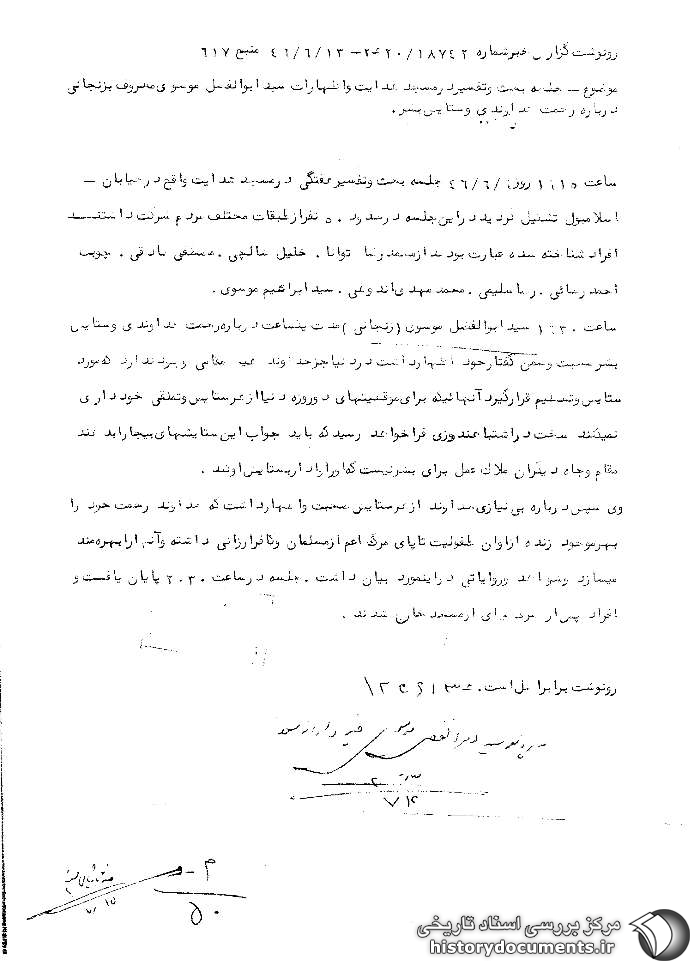 رونوشت گزارش خبر شماره ۱۸۷۴۲/ ۲۰ه۲ - ۴۶/۶/۱۳ منبع ۶۱۷
موضوع – جلسه بحث وتفسیر در مسجد هدایت واظهارات سید ابوالفضل موسوی معروف بزنجانی
درباره رحمت خداوندی وستایش بشر .
ساعت روز ۴۶/۶/ جلسه بحث وتفسیر هفتگی در مسجد هدایت واقع در خیابان –
اسلامبول تشکیل گردید در این جلسه در حدود ۵۰ نفر از طبقات مختلف مردم شرکت داشتند
افراد شناخته شده عبارت بودند از محمد رضا توانا . خلیل صالحی . مصطفی صادقی .
احمد رضائی . رضا سلیمی . محمد مهدی . سید ابراهیم موسوی .
ساعت ۱۳۰ سید ابوالفضل موسوی (زنجانی ) مدت یکساعت درباره رحمت خداوندی وستایش
بشر صحبت وضمن گفتار خود اظهار داشت در دنیا جز خداوند هیچ مقامی وجود ندارد که مورد
ستایش وتعظیم قرار گیرد آنهائیکه برای موقعیتهای دوروزه دنیا از هر ستایش وتملقی خود داری
نمیکنند سخت در اشتباهند روزی فرا خواهد رسید که باید جواب این ستایشهای بیجا را بدهند
مقام وجاه دیگران ملاک عمل برای بشر نیست که او را وادار بستایش
وی سپس درباره بی نیازی خداوند از هر ستایش صحبت واظهار داشت که خداوند رحمت خود را
بهر موجود زنده از اوان طفولیت تا پای مرگ اعم از مسلمان وکافر ارزانی داشته وآنها را بهره مند
میسازد وشواهد وروایاتی در اینمورد بیان داشت . جلسه در ساعت ۲۰۳۰ پایان یافت و
افراد پس از از مسجد خارج شدند .
رونوشت برابر اصل است .
۷۴
م –
۵۰
مرکز بررسی اسناد تاریخی
historydocuments.ir